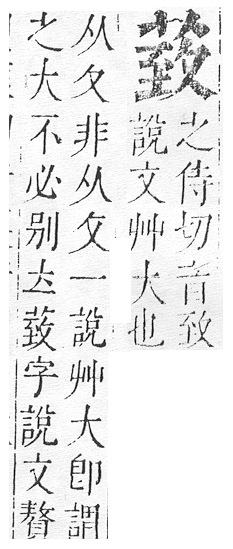 之侍切音致
說文艸大也
从夂非从攵一說艸大卽謂
之大不必别立字說文贅